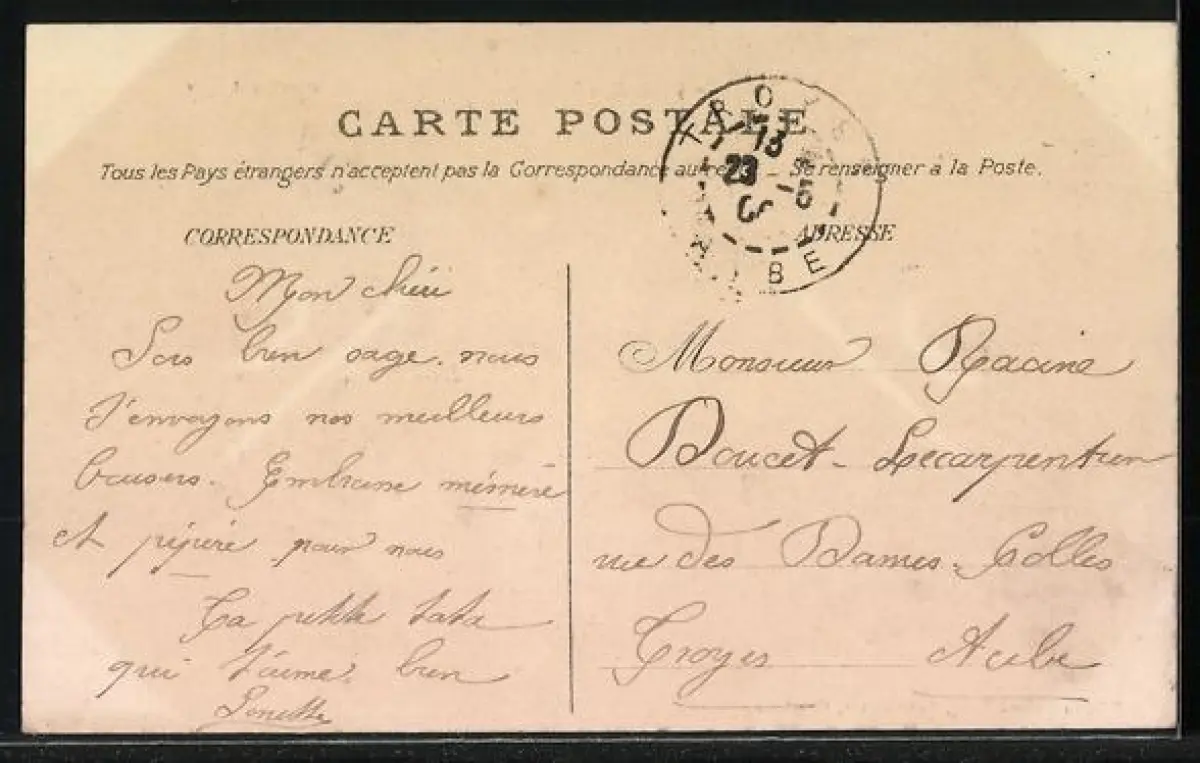 CARTE POSTALE
Tous les Pays étrangers n'acceptent pas la Correspondance au — Se renseigner à la Poste.
TROYES
23 -5
AUBE
CORRESPONDANCE
ADRESSE
Mon chéri
Sois bien sage. nous
t'envoyons nos meilleurs
baisers. Embrasse mémère
et pépère pour nous
Ta petite tata
qui t'aime bien
Monsieur Racine
Doucet-Lecarpentier
rue des Dames-Colles
Troyes Aube